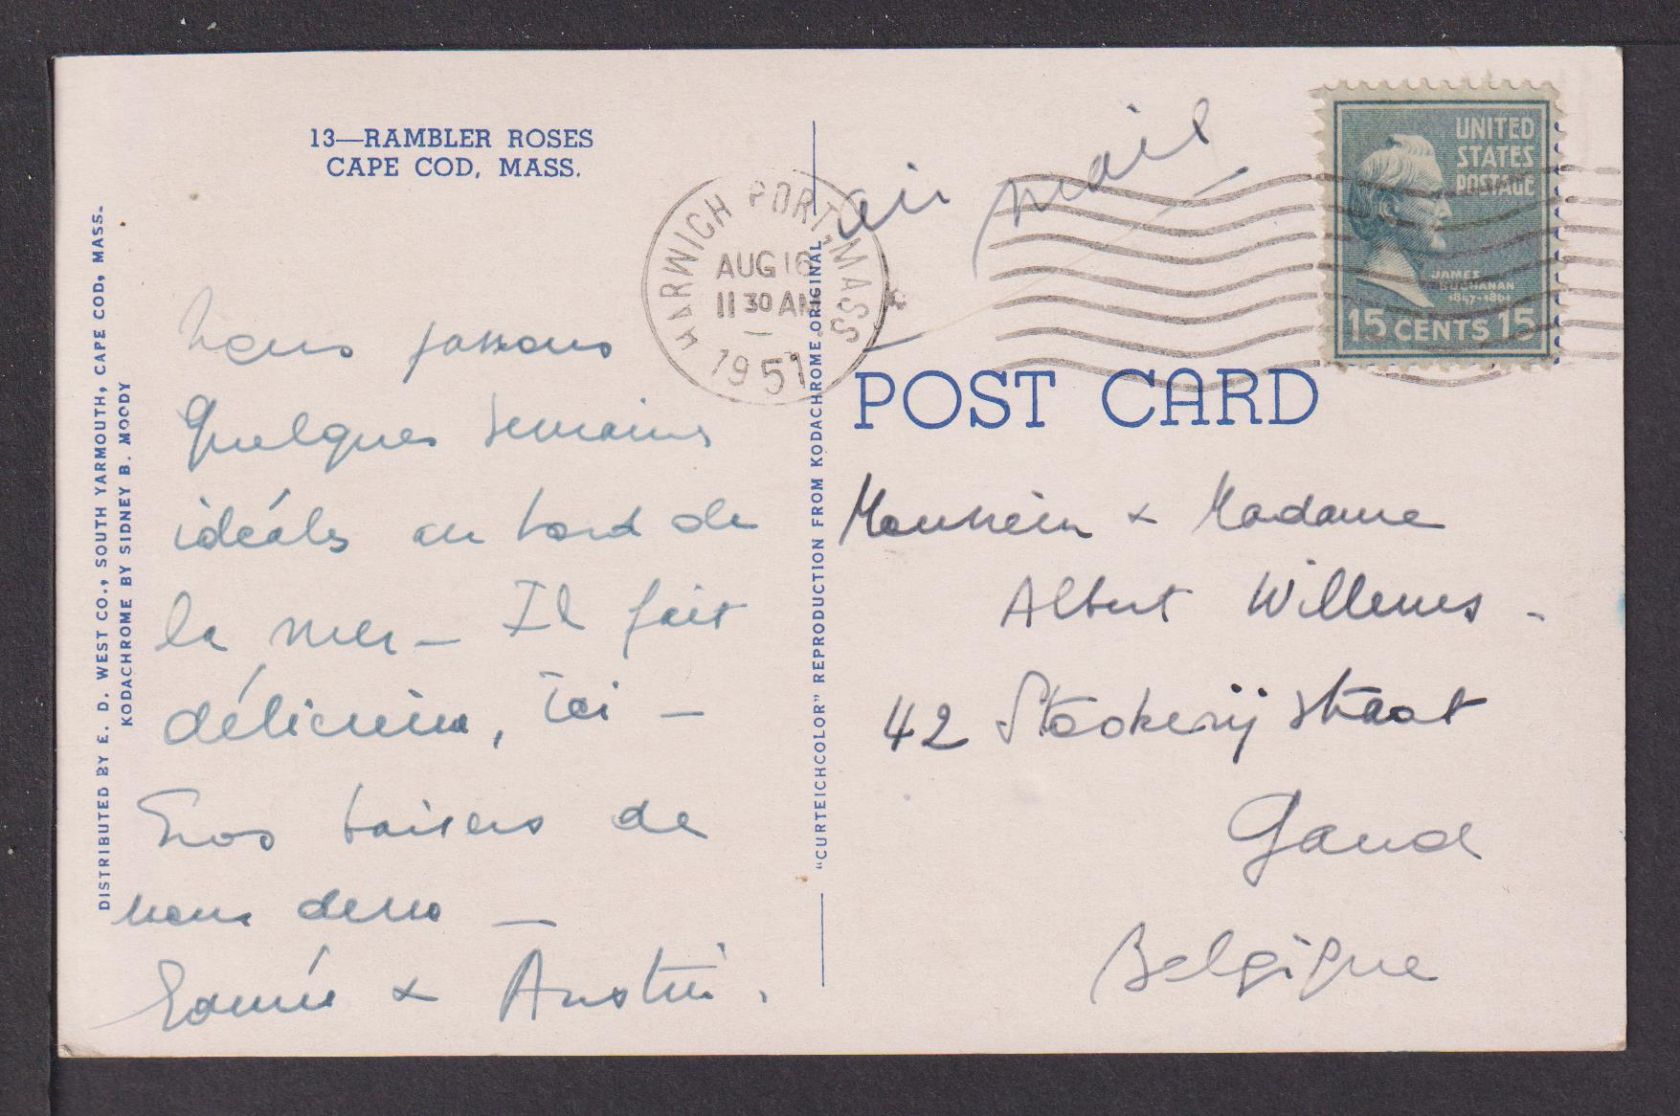 13—RAMBLER ROSES
CAPE COD, MASS.
DISTRIBUTED BY E. D. WEST CO., SOUTH YARMOUTH, CAPE COD, MASS.
KODACHROME BY SIDNEY B. MOODY
Nous passons
Quelques semaines
idéales au bord de
la mer — Il fait
délicieux, ici —
Gros baisers de
nous deux —
&
"CURTEICHCOLOR" REPRODUCTION FROM KODACHROME ORIGINAL
HARWICH PORT, MASS
AUG 16
11 30 AM
1951
air mail
UNITED
STATES
POSTAGE
JAMES
BUCHANAN
1857-1861
15 CENTS 15
POST CARD
Monsieur & Madame
Albert Willems -
42 Stookerijstraat
Gand
Belgique